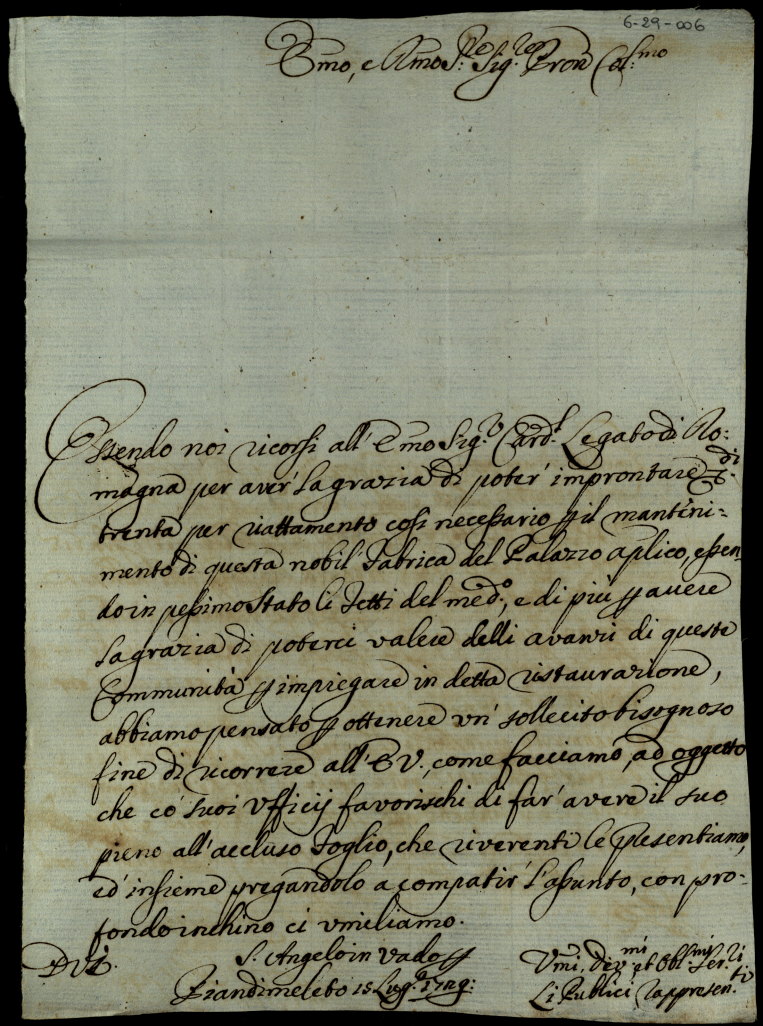 6-29-006
Emo, e Rmo S.re Sig.re Pron Col.mo
Essendo noi ricorsi all' Emo Sig.r Card.l Legato di Ro:
magna per aver' la grazia di poter' improntare di
trenta per riattamento così necessario p il manteni=
mento di questa nobil' Fabrica del Palazzo aplico, essen
do in pessimo stato li Tetti del med.o, e di più p avere
la grazia di poterci valere delli avanzi di queste
Communità p impiegare in detta ristaurazione,
abbiamo pensato p ottenere un' sollecito bisognoso
fine di ricorrere all' E V., come facciamo, ad oggetto
che co' suoi Ufficij favorischi di far' avere il suo
pieno all' accluso Foglio, che riverenti le presentiamo,
ed' insieme pregandolo a compatir' l'assunto, con pro=
fondo inchino ci umiliamo.
D V E. S. Angelo in Vado p
Piandimeleto 15 Lug.o 1729: Umi, Dev.mi et Obl.mi Ser.ri
Li Publici Rappresen.ti